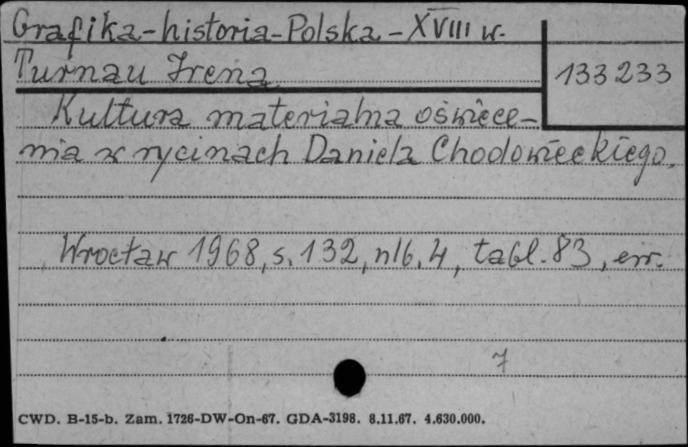 Grafika-historia-Polska-XVIII w.
Turnau Irena
133233
Kultura materialna oświece-
nia w rycinach Daniela Chodowieckiego.
Wrocław 1968, s. 132, nlb. 4, tabl. 83, err.
7
CWD. B-15-b. Zam. 1726-DW-On-67. GDA-3198. 8.11.67. 4.630.000.